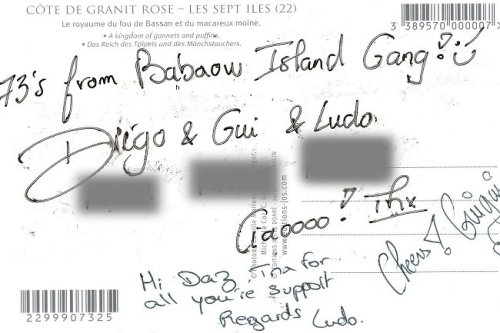 CÔTE DE GRANIT ROSE – LES SEPT ILES (22)
Le royaume du fou de Bassan et du macareux moine.
• A kingdom of gannets and puffins.
• Das Reich des Tölpels und des Mönchstauchers.
3 389570 000007
73's from Babaow Island Gang!
Diégo & Gui & Ludo
Ciaoooo! Thx
Cheers
Hi Daz, Tnx for
all you're support
Regards Ludo.
2299907325